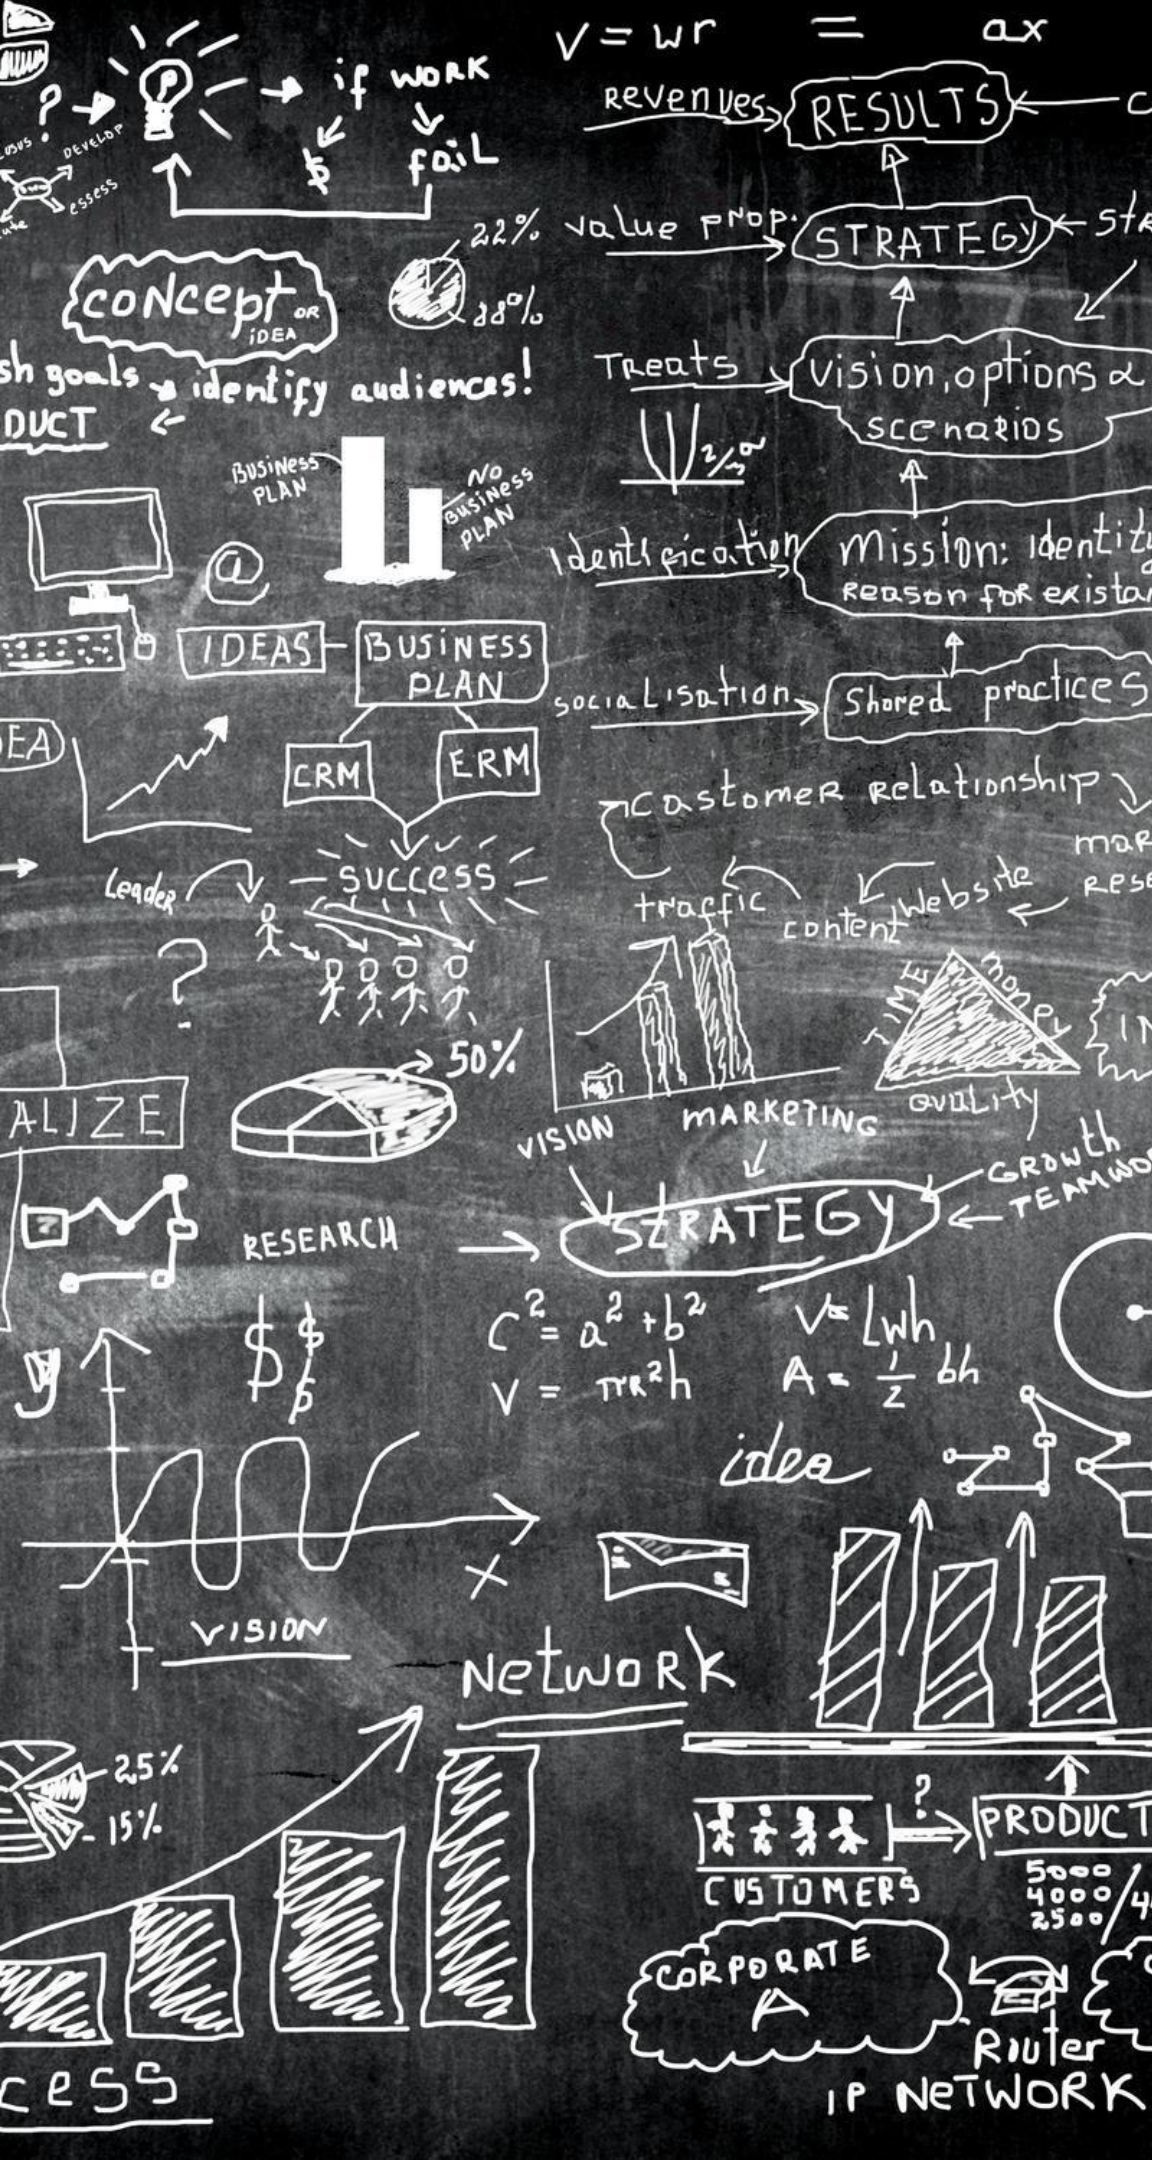 V = wr = ax
?
if WORK
$
fail
DEVELOP
essess
Revenues
RESULTS
22%
value prop.
STRATEGY
concept OR
iDEA
goals
identify audiences!
Treats
vision, options &
scenarios
BUSINESS
PLAN
NO
BUSINESS
PLAN
@
Mission:
Reason for
IDEAS
BUSINESS
PLAN
socialisation
Shared practices
CRM
ERM
Castomer Relationship
Leader
SUCCESS
traffic
content
Website
?
TIME
money
QUALITY
50%
VISION
MARKETING
GROWTH
RESEARCH
STRATEGY
C² = a² + b²
V = Lwh
V = πR²h
A = 1/2 bh
$ $
$
y
idea
x
VISION
Network
25%
15%
?
PRODUCT
CUSTOMERS
5000
4000
2500
CORPORATE
A
Router
IP NETWORK